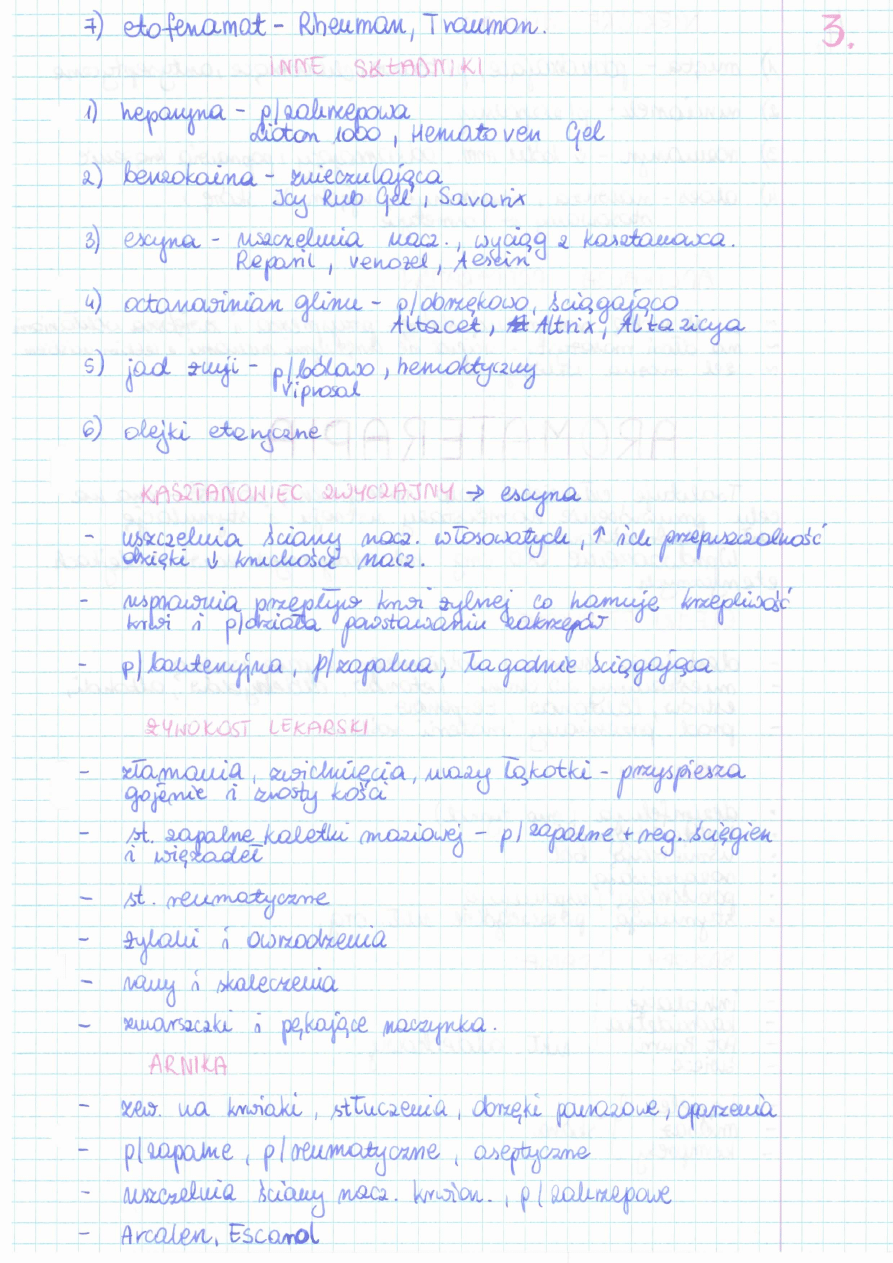 7) etofenamat - Rheuman, Traumon.
3.
INNE SKŁADNIKI
1) heparyna - p/zakrzepowa
Lioton 1000, Hematoven Gel
2) benzokaina - znieczulająca
Icy Rub Gel, Savarix
3) escyna - uszczelnia nacz., wyciąg z kasztanowca.
Reparil, venozel, Aescin
4) octanowinian glinu - p/obrzękowo, ściągająco
Altacet, Altrix, Altaziaja
5) jad żmiji - p/bólowo, hemoktyczny
Viprosal
6) olejki eteryczne
KASZTANOWIEC ZWYCZAJNY → escyna
- uszczelnia ściany nacz. włosowatych, ↑ ich przepuszczalność
dzięki ↓ kruchość nacz.
- usprawnia przepływ krwi żylnej co hamuje krzepliwość
krwi i p/działa powstawaniu zakrzepów
- p/bakteryjna, p/zapalna, łagodnie ściągająca
ŻYWOKOST LEKARSKI
- złamania, zwichnięcia, urazy łąkotki - przyspiesza
gojenie i zrosty kości
- st. zapalne kaletki maziowej - p/zapalne + reg. ścięgien
i więzadeł
- st. reumatyczne
- żylaki i owrzodzenia
- rany i skaleczenia
- zmarszczki i pękające naczynka.
ARNIKA
- zew. na krwiaki, stłuczenia, obrzęki pourazowe, oparzenia
- p/zapalne, p/reumatyczne, aseptyczne
- uszczelnia ściany nacz. krwion., p/zakrzepowe
- Arcalen, Escarol